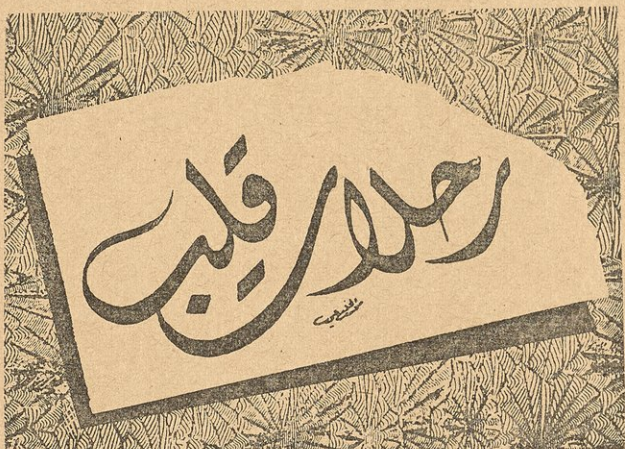 رحلات قلب